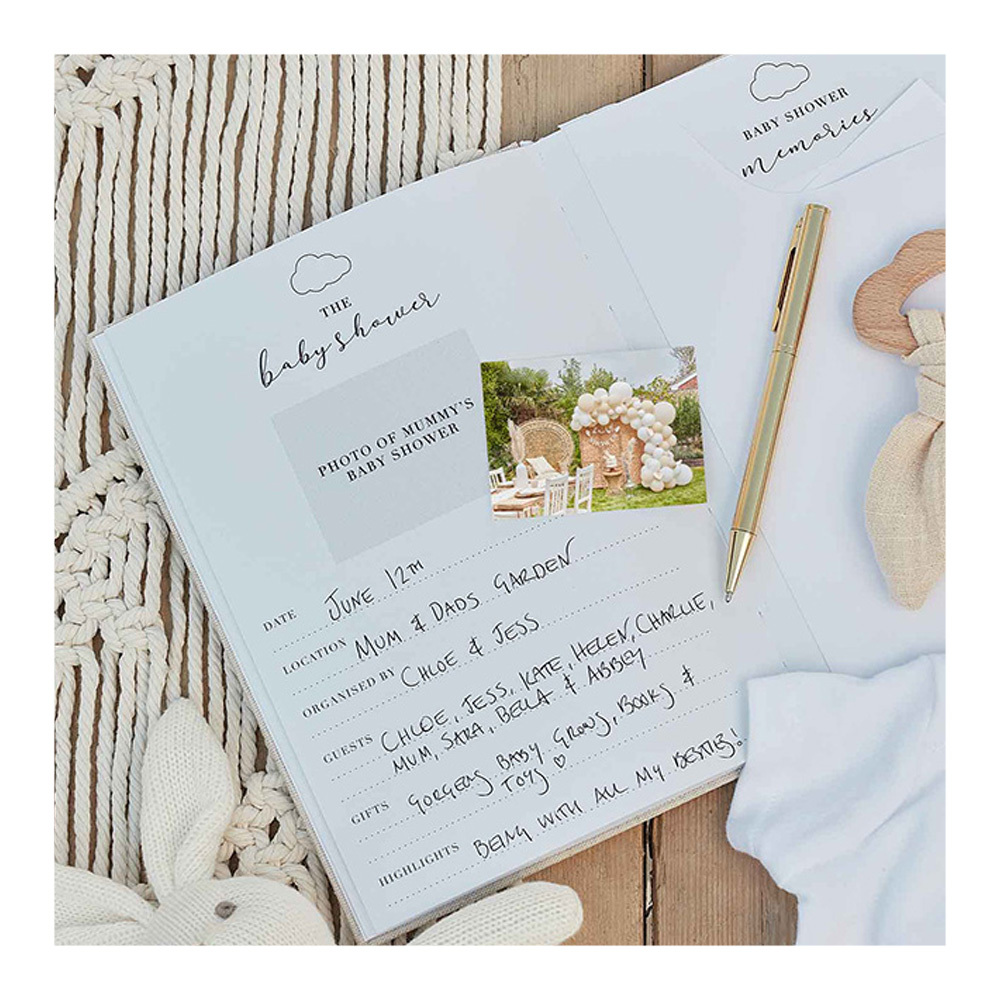 THE
baby shower
PHOTO OF MUMMY'S
BABY SHOWER
DATE JUNE 12TH
LOCATION MUM & DADS GARDEN
ORGANISED BY CHLOE & JESS
GUESTS CHLOE, JESS, KATE, HELEN, CHARLIE,
MUM, SARA, BELLA & ABBEY
GIFTS GORGEOUS BABY GROWS, BOOKS &
TOYS ♡
HIGHLIGHTS BEING WITH ALL MY BESTIES!
BABY SHOWER
memories